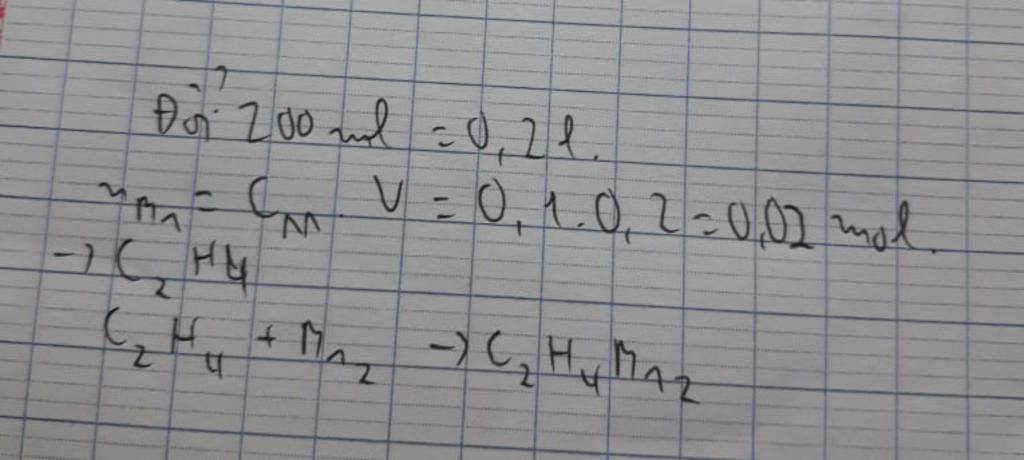 Đổi 200 ml = 0,2 l.
n Br = C M . V = 0,1.0,2 = 0,02 mol.
→ C2H4
C2H4 + Br2 → C2H4Br2